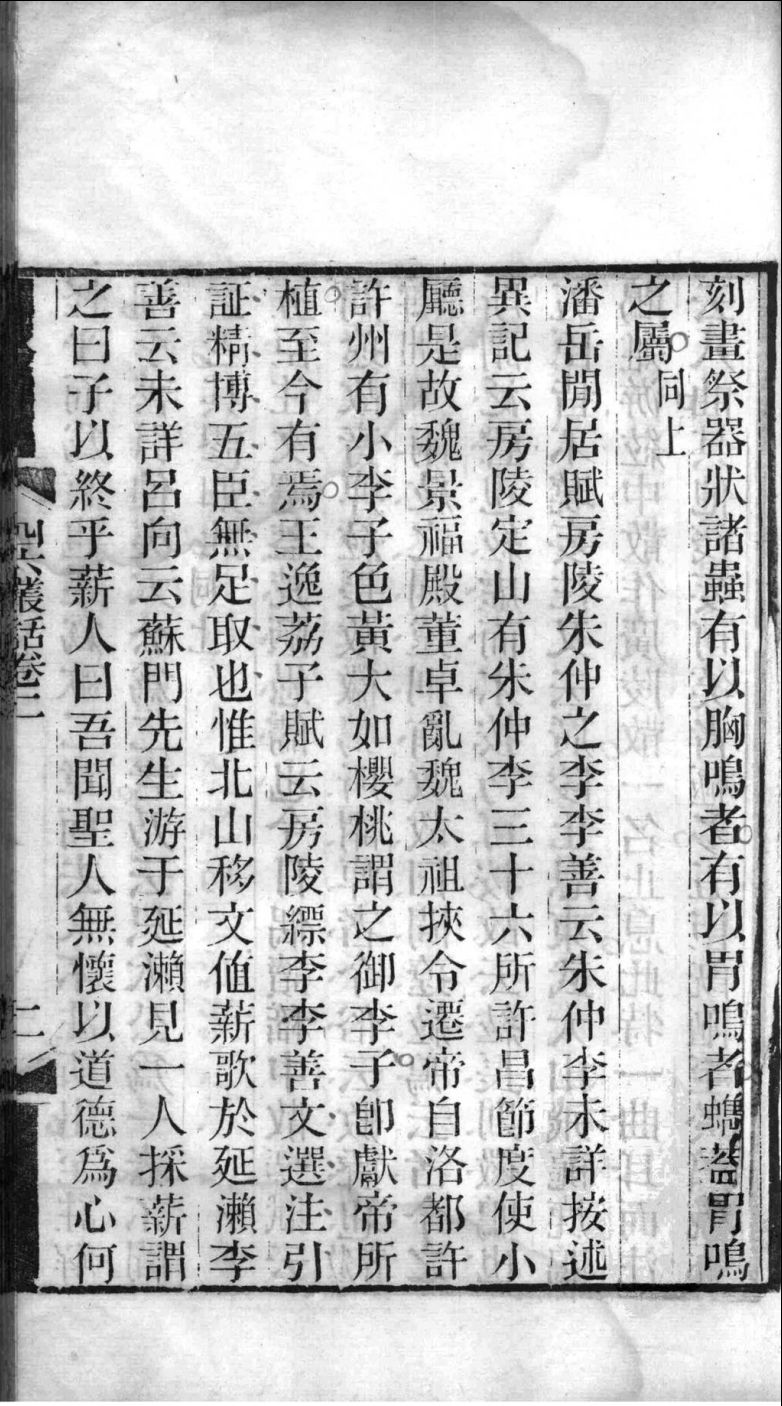 刻畫祭器狀諸蟲有以胸鳴者有以胃鳴者蠵蠵胃鳴
之屬同上
潘岳閒居賦房陵朱仲之李李善云朱仲李未詳按述
異記云房陵定山有朱仲李三十六所許昌節度使小
廳是故魏景福殿董卓亂魏太祖挾令遷帝自洛都許
許州有小李子色黃大如櫻桃謂之御李子卽獻帝所
植至今有焉王逸荔子賦云房陵縹李李善文選注引
証精博五臣無足取也惟北山移文值薪歌於延瀨李
善云未詳呂向云蘇門先生游于延瀨見一人採薪謂
之曰子以終乎薪人曰吾聞聖人無懷以道德爲心何
叢話卷二
二